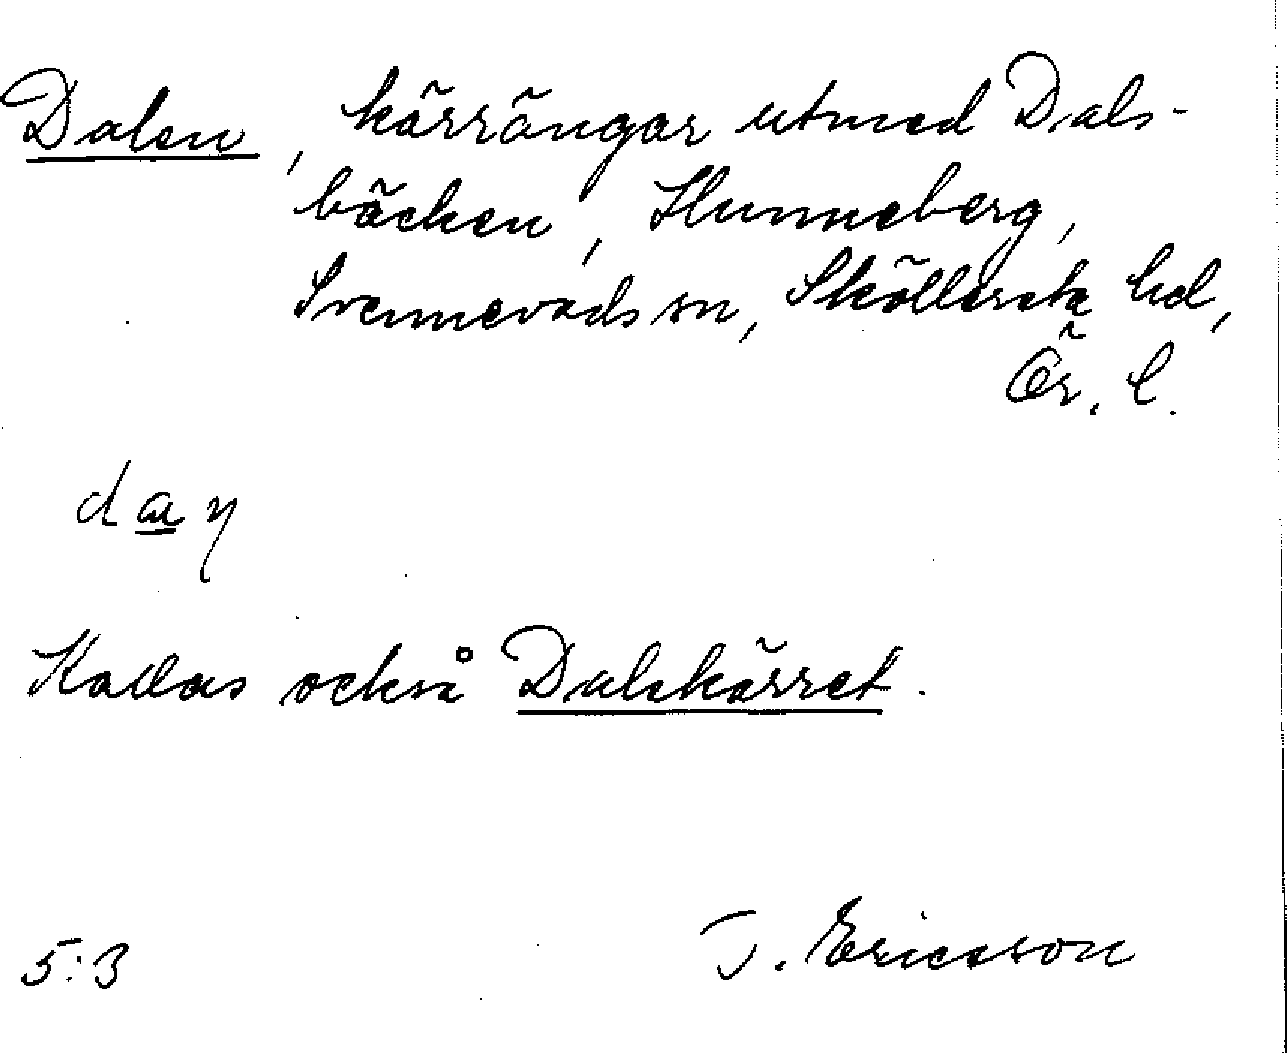 Dalen, kärrängar utmed Dals-
bäcken, Hunneberg,
Svennevads sn, Sköllersta hd,
Ör. l.
Kallas också Dalskärret.
5:3 J. Ericsson